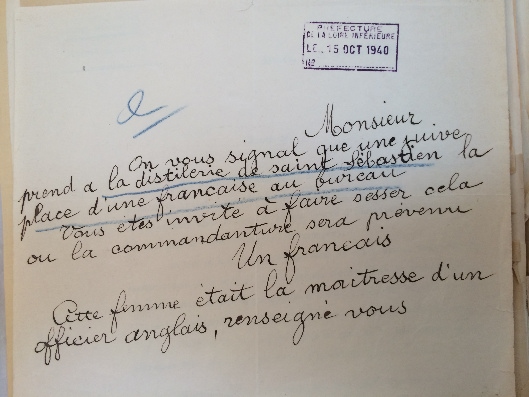 PREFECTURE
DE LA LOIRE INFÉRIEURE
LE, 15 OCT 1940
No
Monsieur
On vous signal que une juive
prend a la distilerie de saint Sébastien la
place d'une francaise au bureau
Vous etes invité à faire sesser cela
ou la commandanture sera prévenu
Un francais
Cette femme était la maitresse d'un
officier anglais, renseigné vous